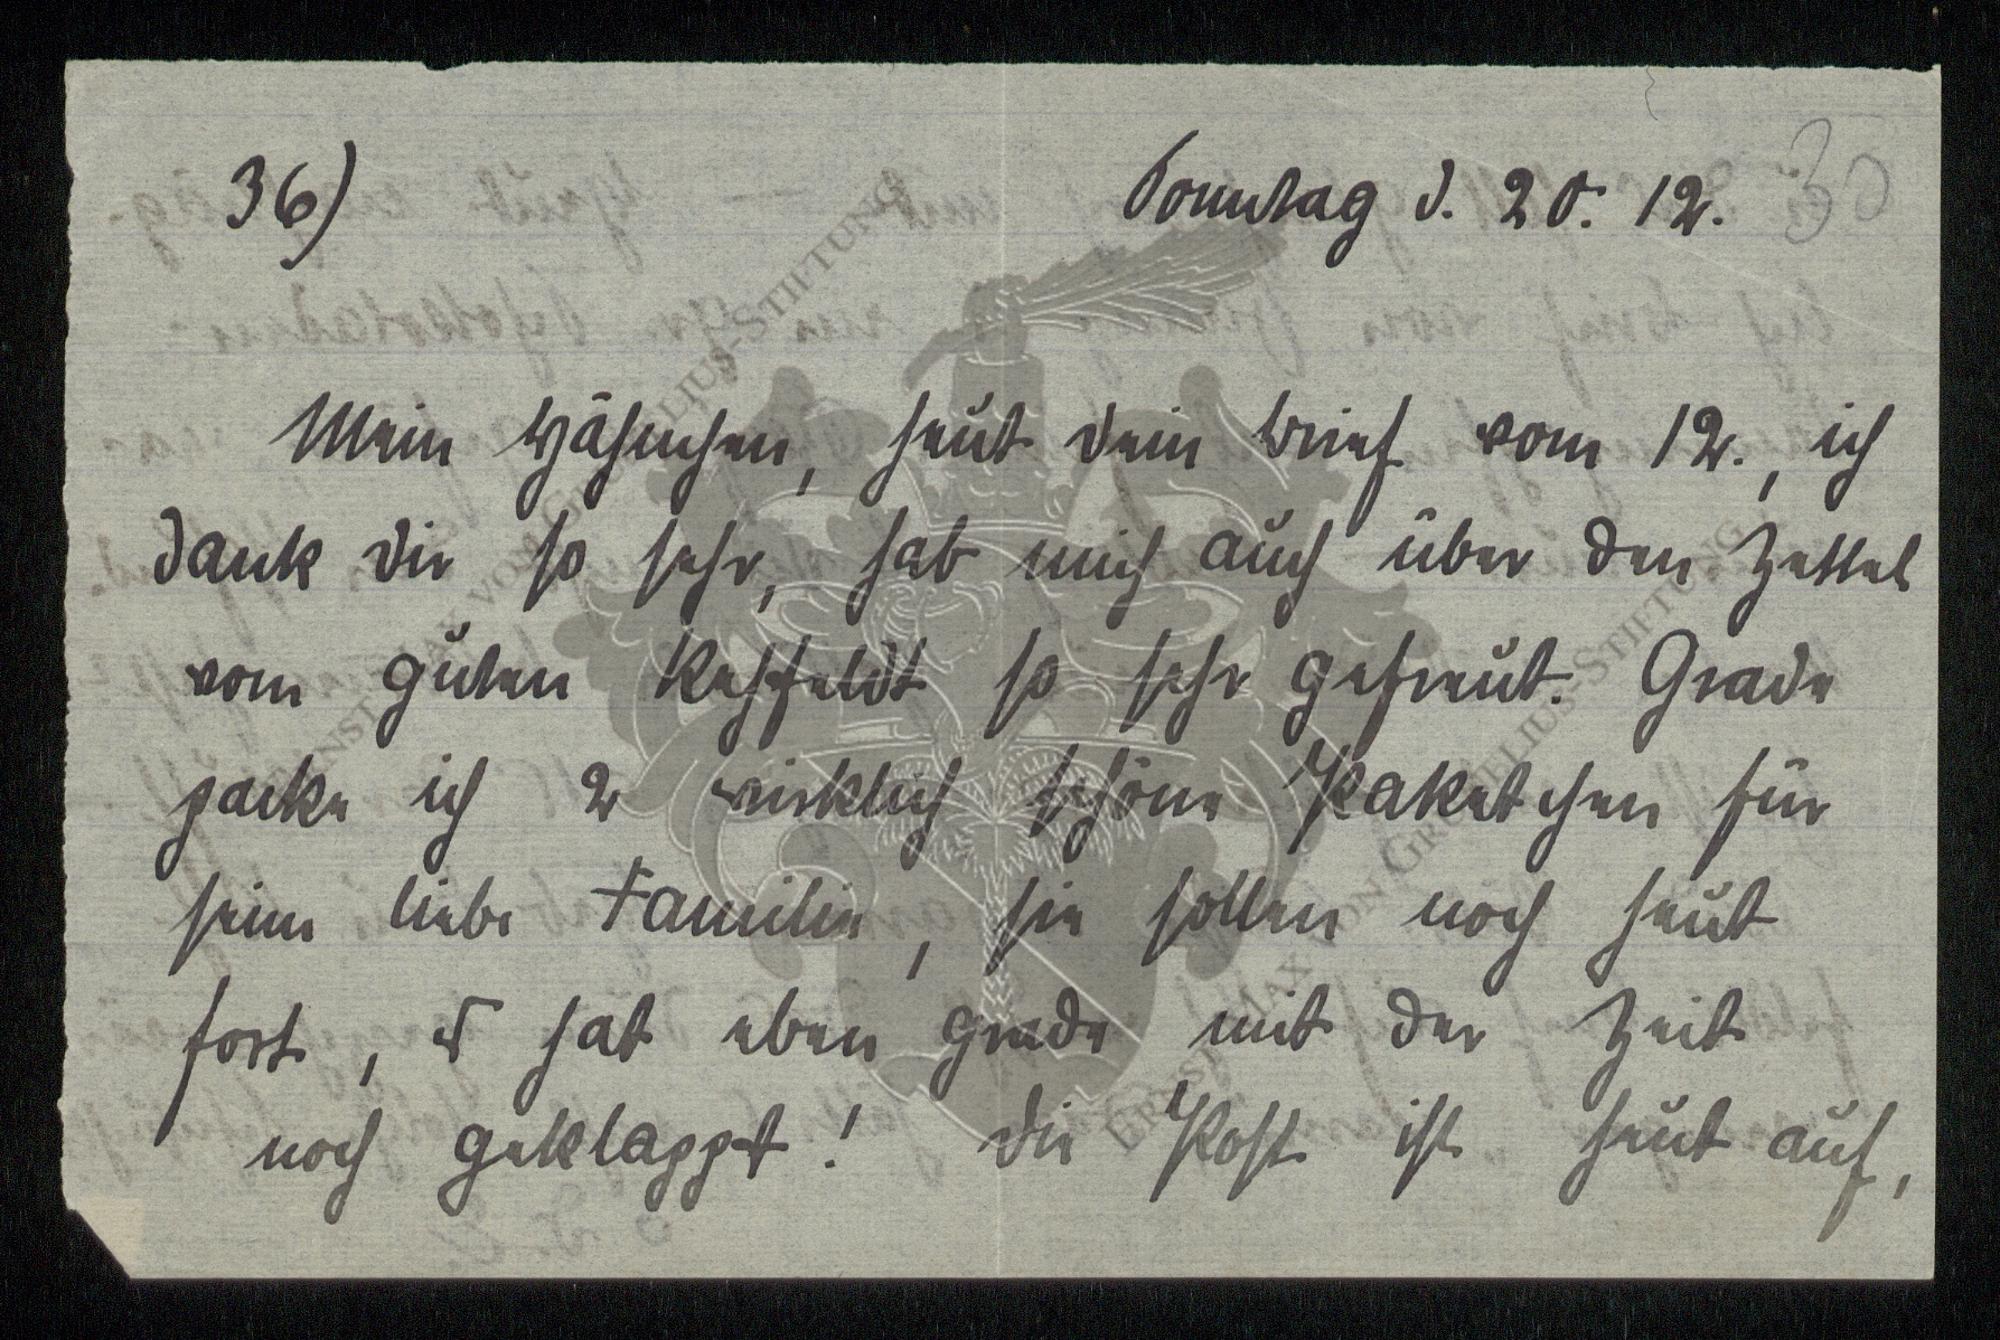 36) Sonntag d. 20. 12. 30
Mein Hähnchen, heut dein Brief vom 12., ich
dank dir so sehr, hab mich auch über den Zettel
vom guten Rehfeldt so sehr gefreut. Grade
packe ich 2 wirklich schöne Paketchen für
seine liebe Familie, sie sollen noch heut
fort, hat eben grade mit der Zeit
noch geklappt! Die Post ist heut auf,
ERNST MAX VON GRUNELIUS-STIFTUNG
ERNST MAX VON GRUNELIUS-STIFTUNG